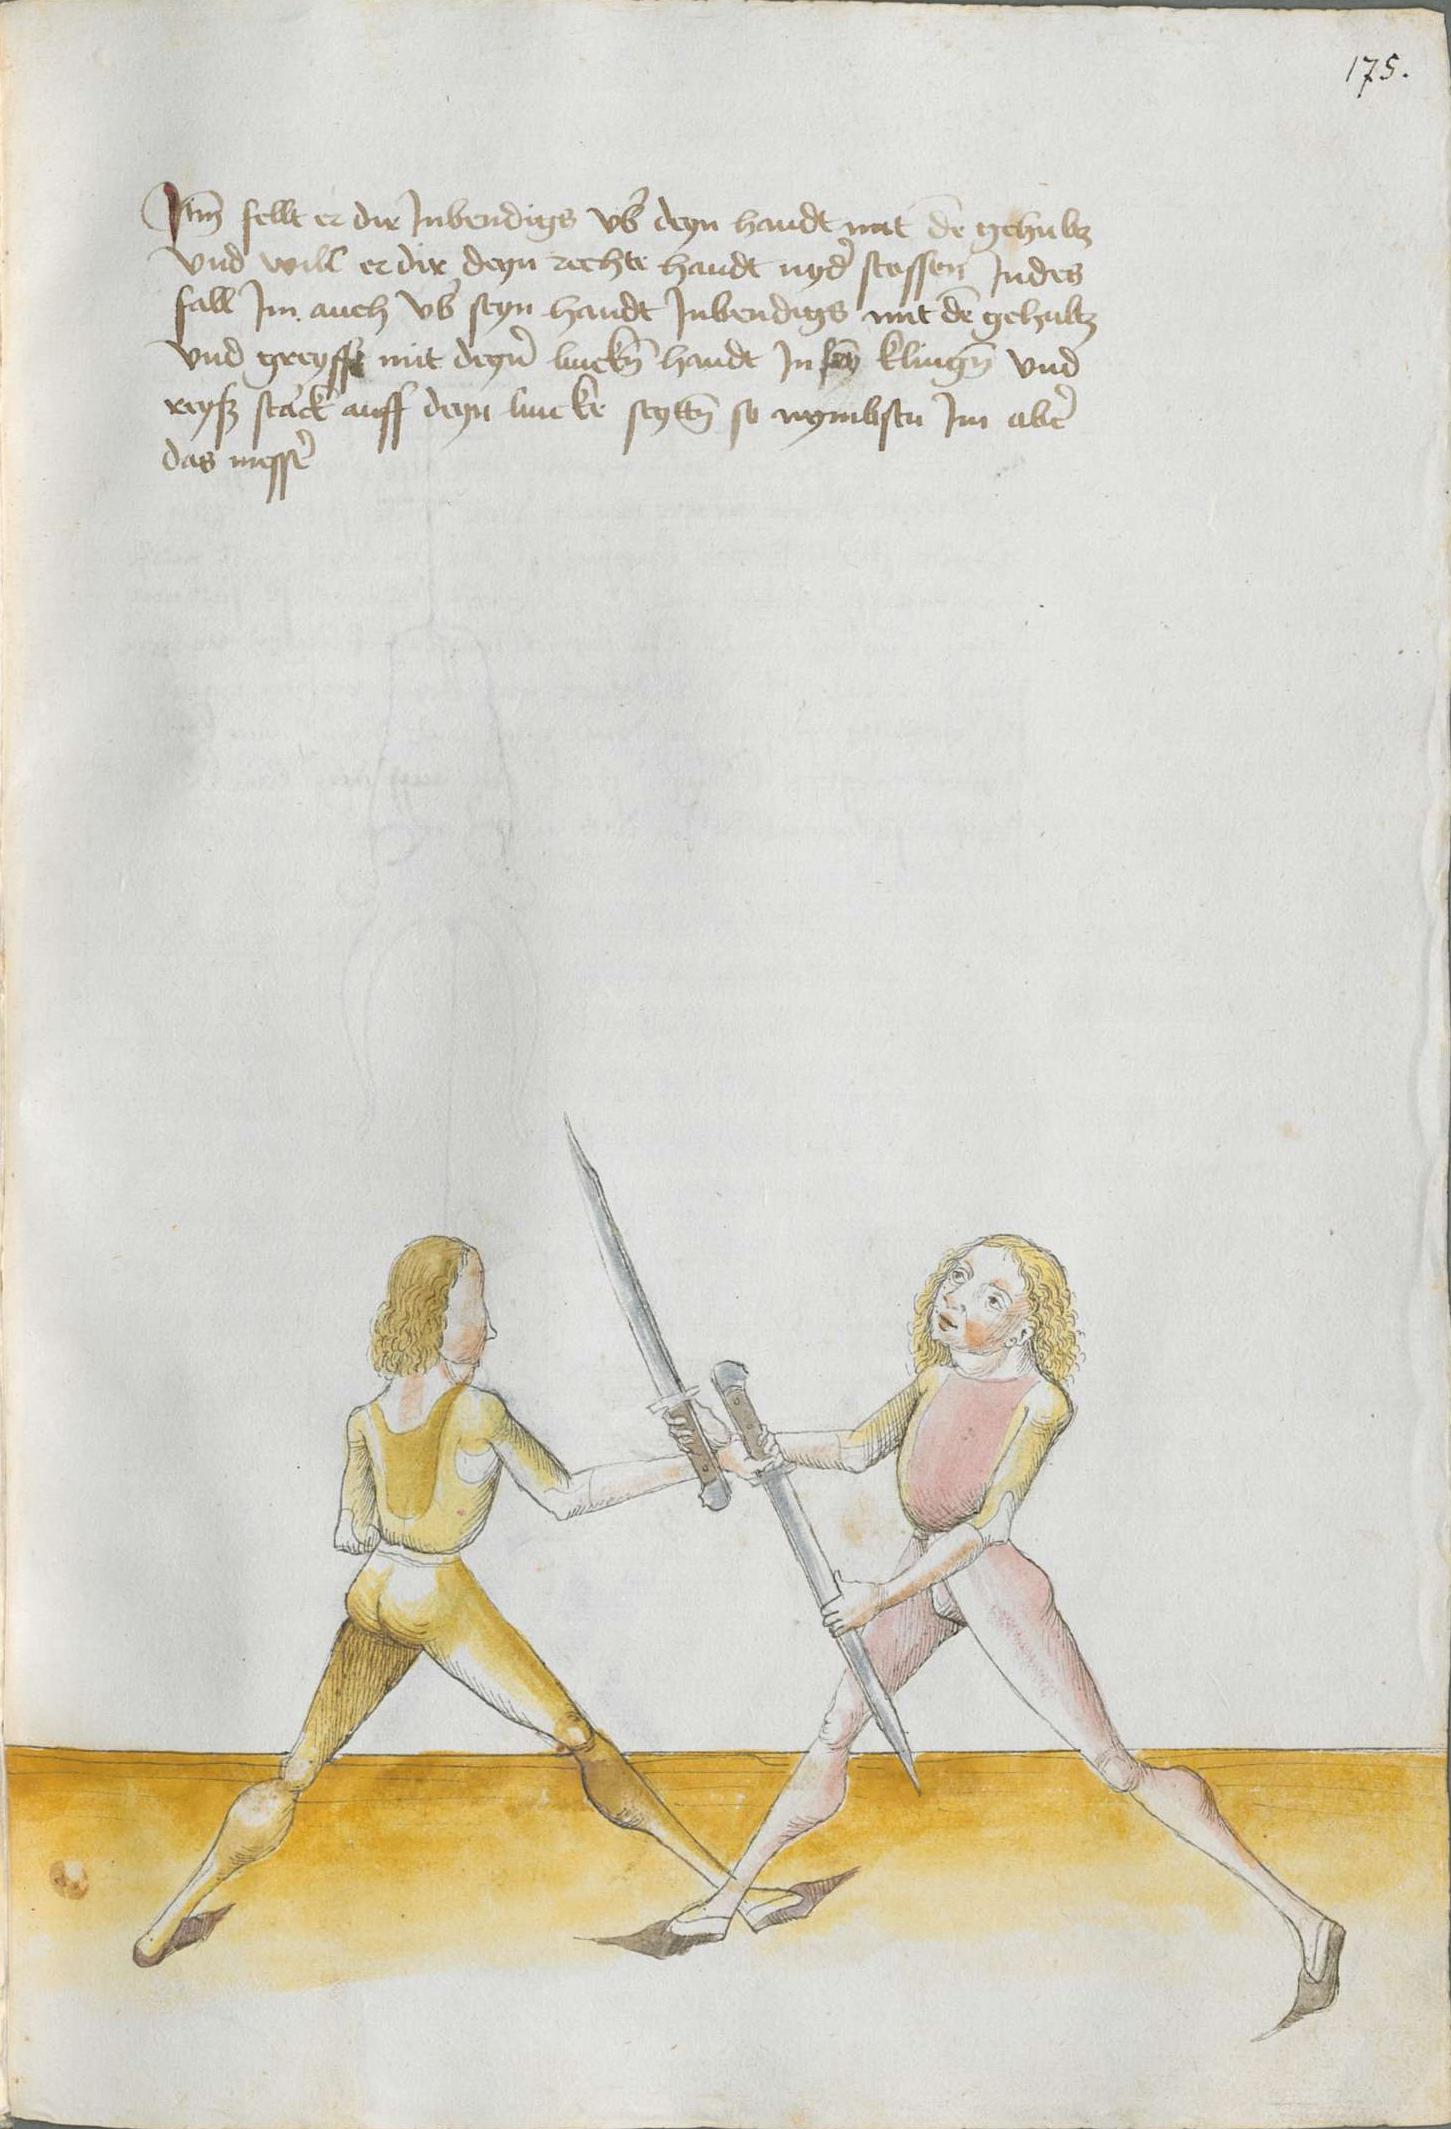 175.
Itm̄ fellt er dir Inbendigs vb̄ deyn handt mit dē gehultz
vnd will er dir deyn rechte handt nyd̄ stossen Indes
fall Im auch vb̄ seyn handt Inbendigs mit dē gehultz
vnd greyff mit deyn̄ linckn̄ handt In sey klingn̄ vnd
reysz starck auff deyn lincke seyttn̄ so nymbstu Im aber̄
das messer̄